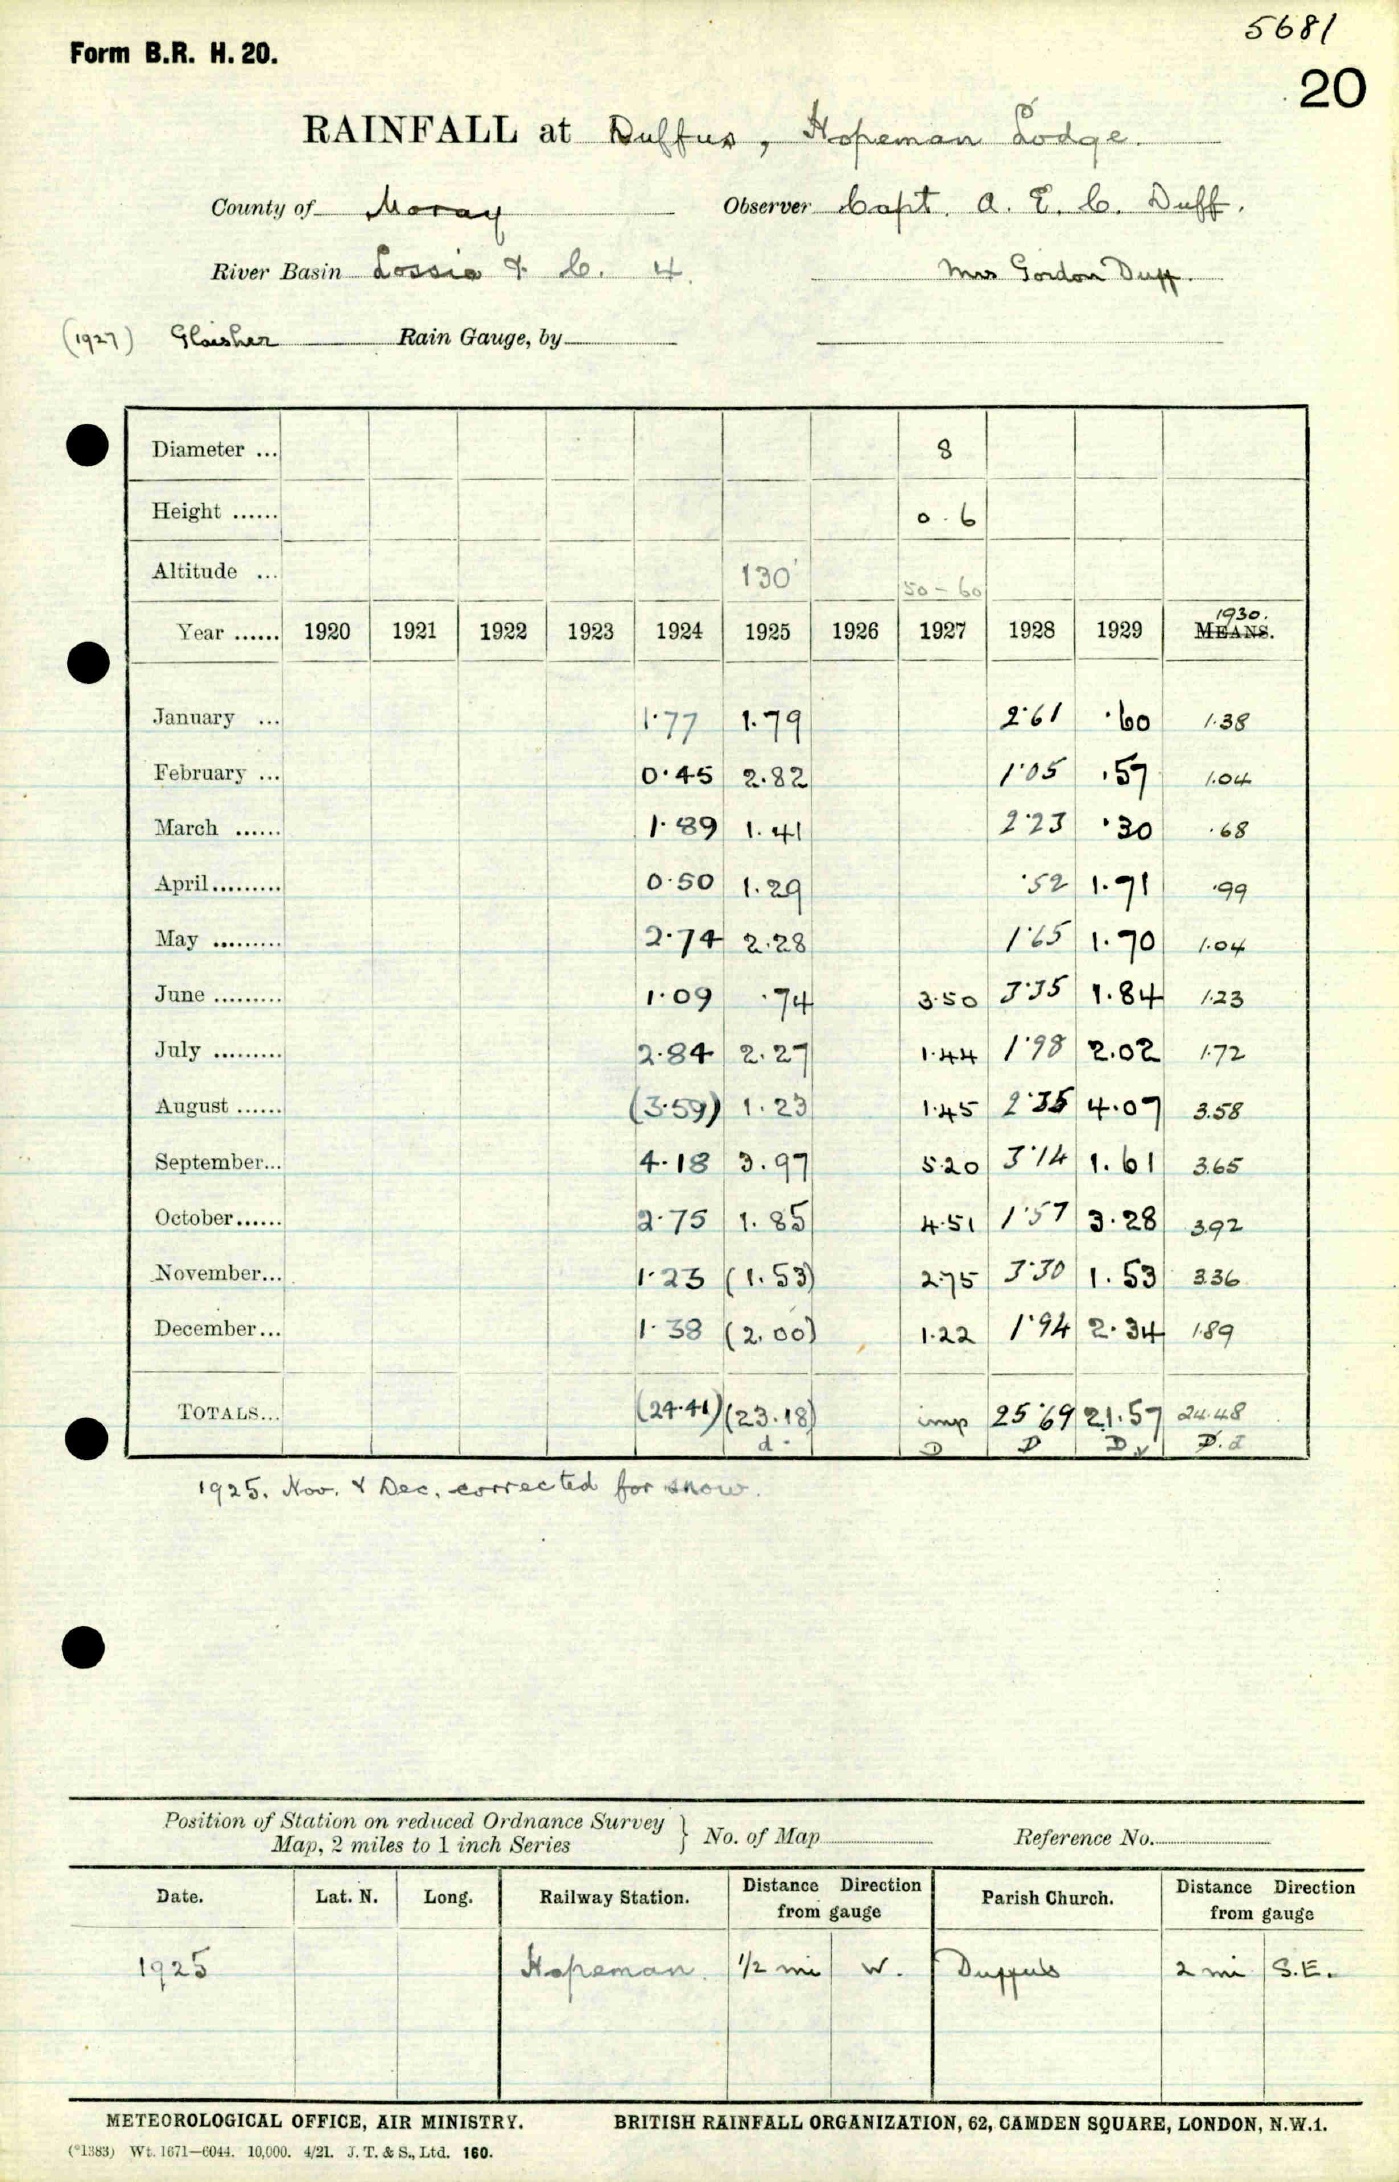 5681
Form B.R. H. 20.
20
RAINFALL at Duffus, Hopeman Lodge.
County of Moray Observer Capt. A. E. C. Duff.
River Basin Lossie & C. 4. Mrs Gordon Duff.
(1927) Glaisher Rain Gauge, by
Diameter ... 8
Height ...... 0.6
Altitude ... 130' 50-60
1930.
Year ...... 1920 1921 1922 1923 1924 1925 1926 1927 1928 1929 MEANS.
January ... 1.77 1.79 2.61 .60 1.38
February ... 0.45 2.82 1.05 .57 1.04
March ...... 1.89 1.41 2.23 .30 .68
April......... 0.50 1.29 .52 1.71 .99
May ......... 2.74 2.28 1.65 1.70 1.04
June ......... 1.09 .74 3.50 3.35 1.84 1.23
July ......... 2.84 2.27 1.44 1.98 2.02 1.72
August ...... (3.59) 1.23 1.45 2.35 4.07 3.58
September... 4.18 3.97 5.20 3.14 1.61 3.65
October...... 2.75 1.85 4.51 1.57 3.28 3.92
November... 1.23 (1.53) 2.75 3.30 1.53 3.36
December... 1.38 (2.00) 1.22 1.94 2.34 1.89
TOTALS... (24.41) (23.18) imp 25.69 21.57 24.48
d. D D D v D. d
1925. Nov. & Dec. corrected for snow.
Position of Station on reduced Ordnance Survey
Map, 2 miles to 1 inch Series } No. of Map Reference No.
Date. Lat. N. Long. Railway Station. Distance Direction from gauge Parish Church. Distance Direction from gauge
1925 Hopeman. 1/2 mi W. Duffus 2 mi S.E.
METEOROLOGICAL OFFICE, AIR MINISTRY. BRITISH RAINFALL ORGANIZATION, 62, CAMDEN SQUARE, LONDON, N.W.1.
(*1383) Wt. 1671—6044. 10,000. 4/21. J. T. & S., Ltd. 160.